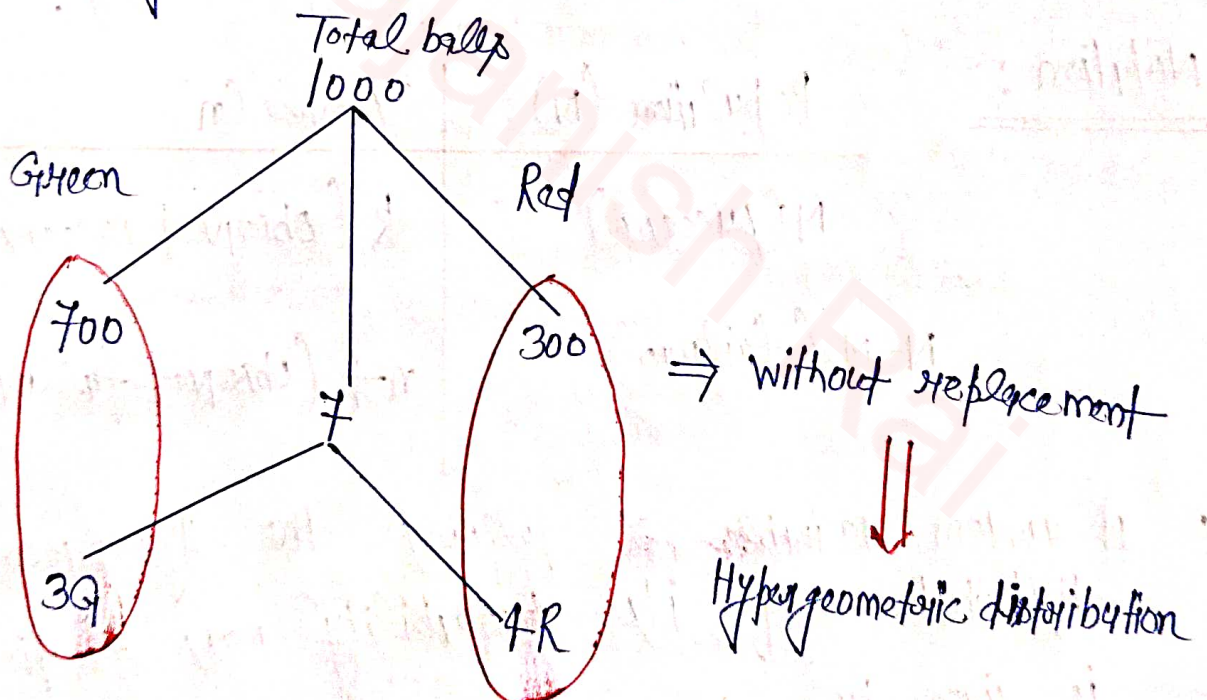 Total balls
1000
Green
Red
700
300
⇒ without replacement
7
3G
4R
Hypergeometric distribution